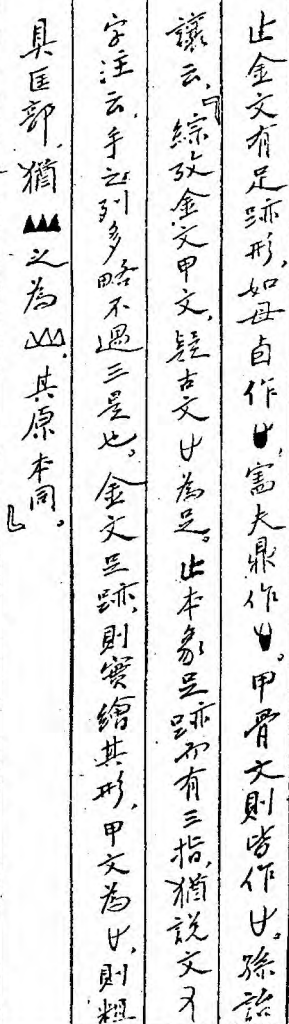 止金文有足跡形，如母卣作，富夫鼎作。甲骨文則皆作。孫詒
讓云，「綜攷金文甲文，疑古文為足。止本象足跡而有三指，猶說文又
字注云，手之列多略不過三是也。金文足跡，則實繪其形，甲文為，則粗
具匡郭，猶之為，其原本同。」